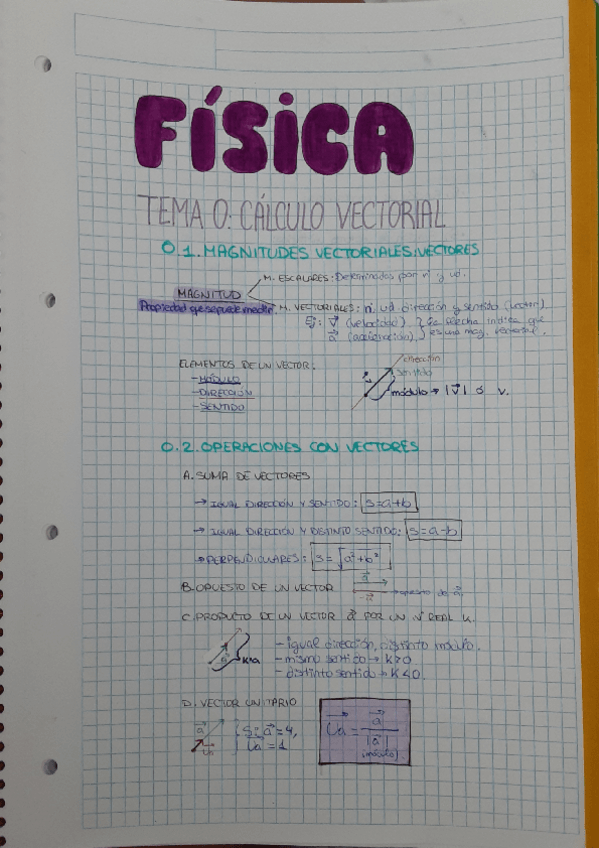 FÍSICA
TEMA 0: CÁLCULO VECTORIAL
0.1. MAGNITUDES VECTORIALES: VECTORES
M. ESCALARES: Determinadas por nº y ud.
MAGNITUD
Propiedad que se puede medir.
M. VECTORIALES: nº, ud, dirección y sentido (vector)
Ej: v⃗ (velocidad) } la flecha indica que
a⃗ (aceleración) } es una mag. vectorial.
ELEMENTOS DE UN VECTOR:
- MÓDULO
- DIRECCIÓN
- SENTIDO
dirección
sentido
módulo → |v⃗| ó v.
0.2. OPERACIONES CON VECTORES
A. SUMA DE VECTORES
→ IGUAL DIRECCIÓN Y SENTIDO: S=a+b
→ IGUAL DIRECCIÓN Y DISTINTO SENTIDO: S=a-b
→ PERPENDICULARES: S=√a²+b²
B. OPUESTO DE UN VECTOR
a⃗
-a⃗ → opuesto de a⃗.
C. PRODUCTO DE UN VECTOR a⃗ POR UN Nº REAL K.
a⃗
K·a
- igual dirección, distinto módulo.
- mismo sentido → K>0
- distinto sentido → K<0.
D. VECTOR UNITARIO
a⃗
Ua
Si a⃗=4,
Ua=1
U⃗a = a⃗ / |a⃗|
(módulo)